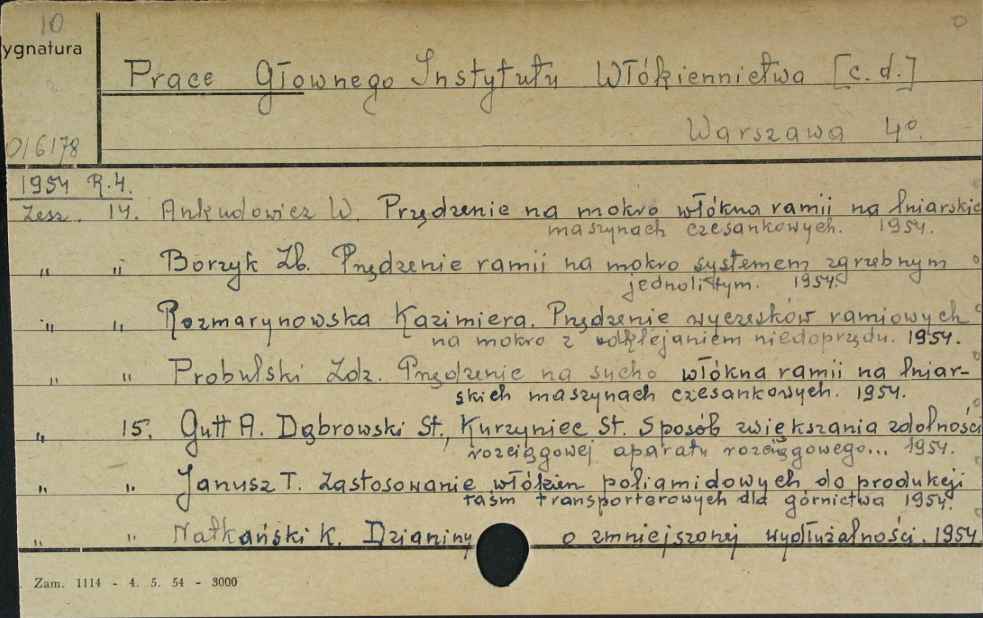 10
ygnatura
Prace Głownego Instytutu Włókiennictwa [c. d.]
Warszawa 4°.
0/6178
1954 R.4.
Zesz. 14. Ankudowicz W. Przędzenie na mokro włókna ramii na lniarskich
maszynach czesankowych. 1954.
" " Borzyk Zb. Przędzenie ramii na mokro systemem zgrzebnym
jednolitym. 1954.
" " Rozmarynowska Kazimiera. Przędzenie wyczesków ramiowych
na mokro z odklejaniem niedoprzędu. 1954.
" " Probulski Zdz. Przędzenie na sucho włókna ramii na lniar-
skich maszynach czesankowych. 1954.
" 15. Gutt A. Dąbrowski St., Kurzyniec St. Sposób zwiększania zdolności
rozciągowej aparatu rozciągowego... 1954.
" " Janusz T. Zastosowanie włókien poliamidowych do produkcji
taśm transporterowych dla górnictwa 1954.
" " Natkański K. Dzianiny o zmniejszonej wydłużalności. 1954
Zam. 1114 - 4. 5. 54 - 3000